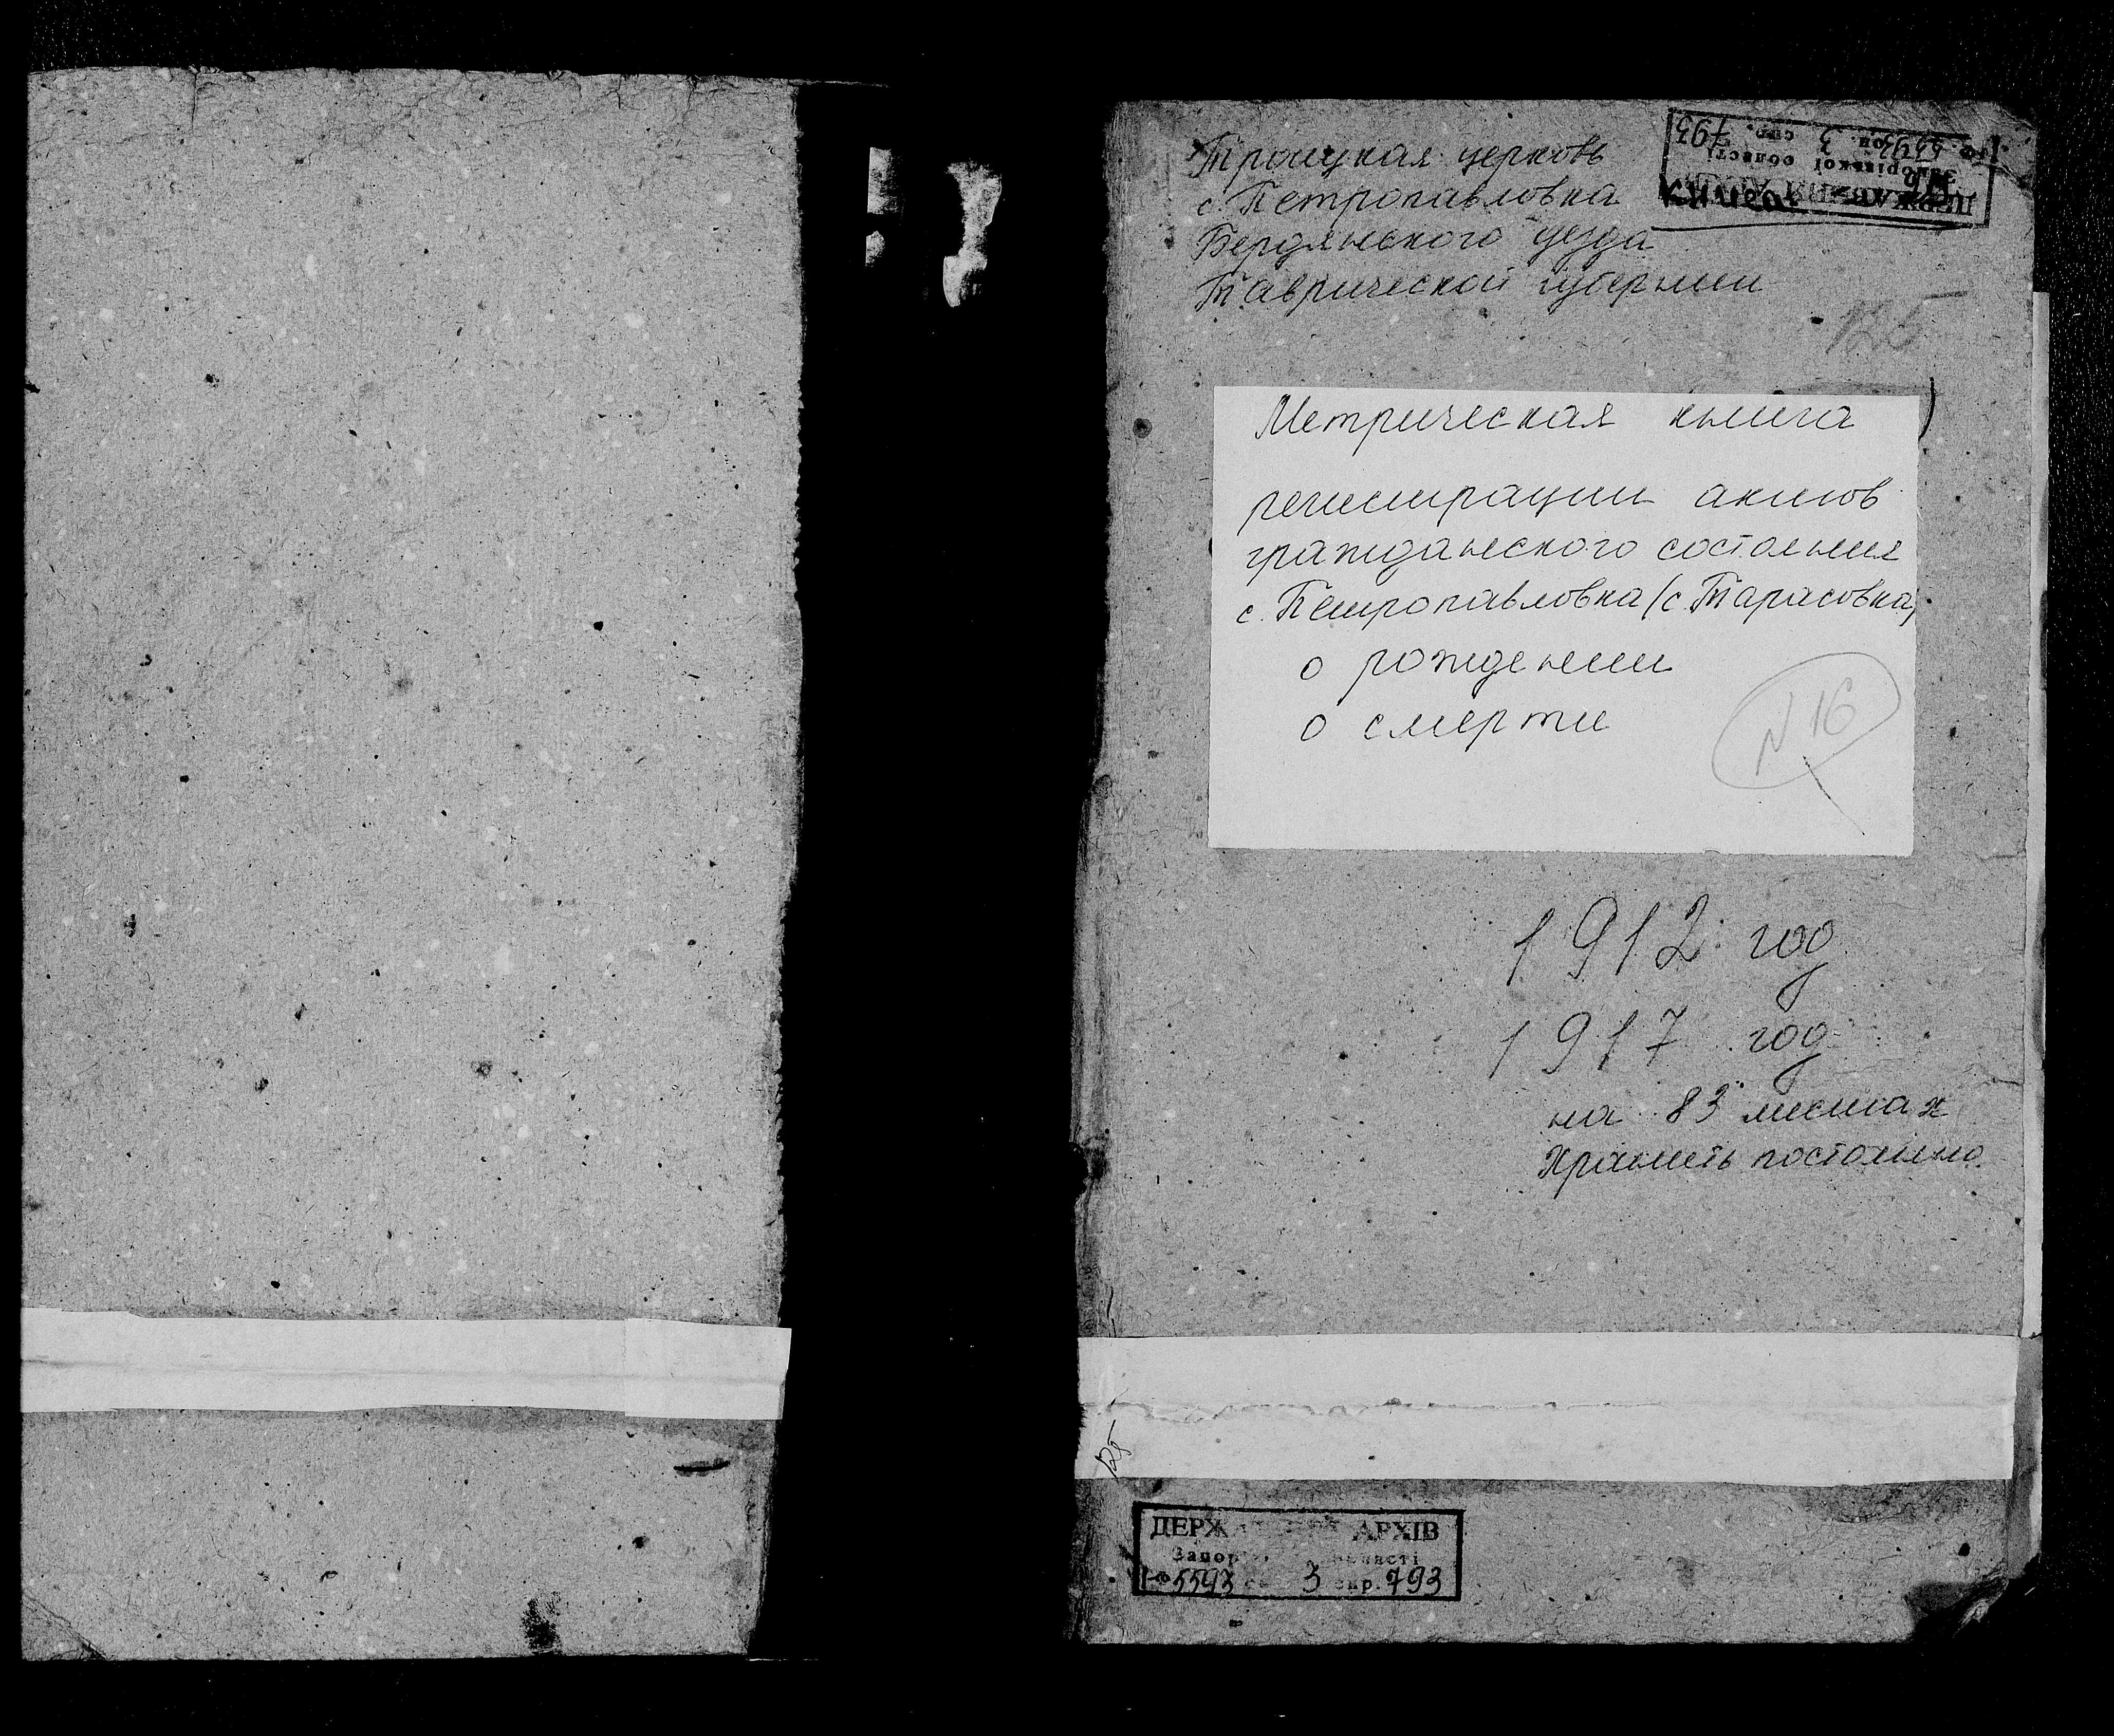 Троицкая церковь
с. Петропавловка
Бердянского уезда
Таврической губернии
ДЕРЖАВНИЙ АРХІВ
Запорізької області
Ф. 5593 оп. 3 спр. 793
125
Метрическая книга
регистрации актов
гражданского состояния
с. Петропавловка (с. Тарасовка)
о рождении
о смерти
N 16
1912 год
1917 год
на 83 листах
Хранить постоянно.
125
ДЕРЖАВНИЙ АРХІВ
Запорізької області
Ф 5593 оп. 3 спр. 793